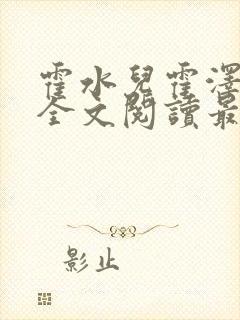 霍水兒霍澤
全文閱讀最
影止